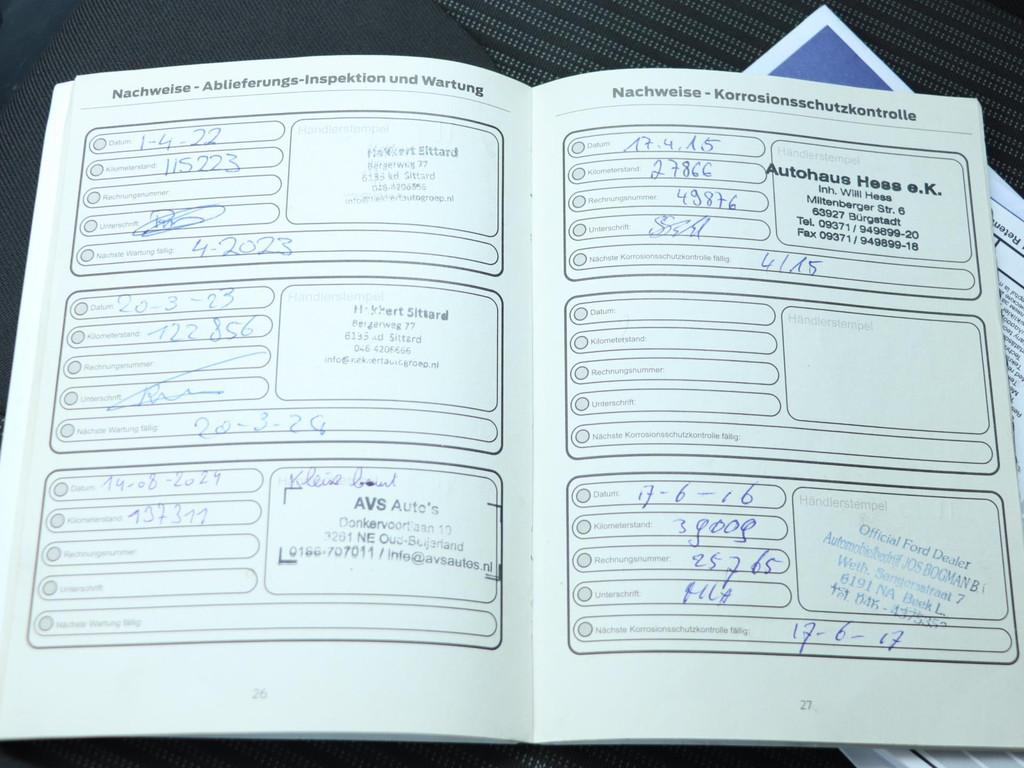 Nachweise - Ablieferungs-Inspektion und Wartung
Datum: 1-4-22
Kilometerstand: 115223
Rechnungsnummer:
Unterschrift:
Nächste Wartung fällig: 4-2023
Händlerstempel
Hekkert Sittard
Bergerweg 77
Sittard
Datum: 20-3-23
Kilometerstand: 122856
Rechnungsnummer:
Unterschrift:
Nächste Wartung fällig: 20-3-24
Händlerstempel
Hekkert Sittard
Bergerweg 77
Sittard
046 4206666
info@hekkertautogroep.nl
Datum: 14-08-2024
Kilometerstand: 137311
Rechnungsnummer:
Unterschrift:
Nächste Wartung fällig:
Kleine beurt
AVS Auto's
Donkervoortlaan 10
3261 NE Oud-Beijerland
0186-707011 / info@avsautos.nl
26
Nachweise - Korrosionsschutzkontrolle
Datum: 17.4.15
Kilometerstand: 27866
Rechnungsnummer: 49876
Unterschrift:
Nächste Korrosionsschutzkontrolle fällig: 4/15
Händlerstempel
Autohaus Hess e.K.
Inh. Willi Hess
Miltenberger Str. 6
63927 Bürgstadt
Tel. 09371 / 949899-20
Fax 09371 / 949899-18
Datum:
Kilometerstand:
Rechnungsnummer:
Unterschrift:
Nächste Korrosionsschutzkontrolle fällig:
Händlerstempel
Datum: 17-6-16
Kilometerstand: 39009
Rechnungsnummer: 25765
Unterschrift:
Nächste Korrosionsschutzkontrolle fällig: 17-6-17
Händlerstempel
Official Ford Dealer
Automobielbedrijf JOS BOGMAN B
Weth. Sangersstraat 7
6191 NA Beek L.
27